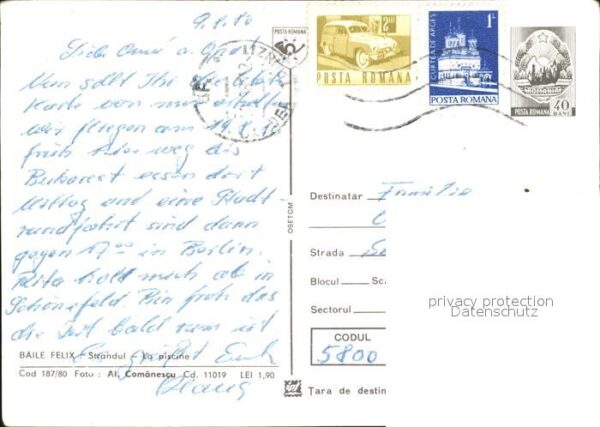 9.8.80
Liebe Oma u. Opa!
Nun sollt Ihr die letzte
Karte von mir erhalten
Wir fliegen am 19.8.80
früh hier weg bis
Bukarest essen dort
Mittag und eine Stadt-
rundfahrt sind dann
gegen 17.00 in Berlin.
holt mich ab in
Schönefeld Bin froh das
die Zeit bald rum ist
Es grüßt Euch
BĂILE FELIX - Ștrandul - La piscine
Cod 187/80 Foto : Al. Comănescu Cd. 11019 LEI 1,90
OSETCM
POSTA ROMANA
2 LEI
POSTA ROMANA
1L
CURTEA DE ARGEȘ
POSTA ROMANA
POSTA ROMANA 40 BANI
Destinatar Familie
Strada
Blocul
Sectorul
privacy protection
Datenschutz
CODUL
5800
Țara de destin